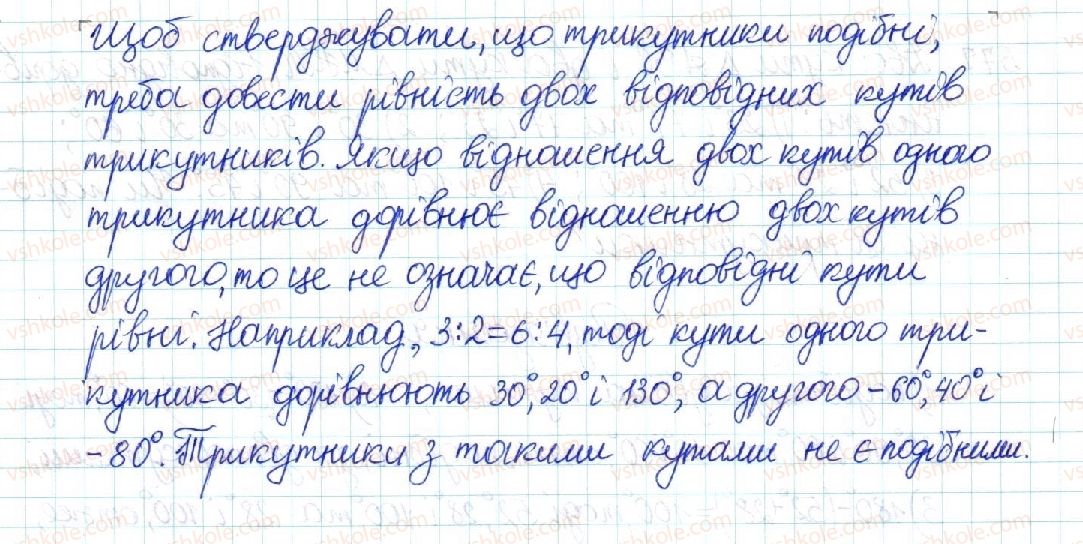 Щоб стверджувати, що трикутники подібні,
треба довести рівність двох відповідних кутів
трикутників. Якщо відношення двох кутів одного
трикутника дорівнює відношенню двох кутів
другого, то це не означає, що відповідні кути
рівні. Наприклад, 3:2=6:4, тоді кути одного три-
кутника дорівнюють 30°, 20° і 130°, а другого – 60°, 40° і
- 80°. Трикутники з такими кутами не є подібними.